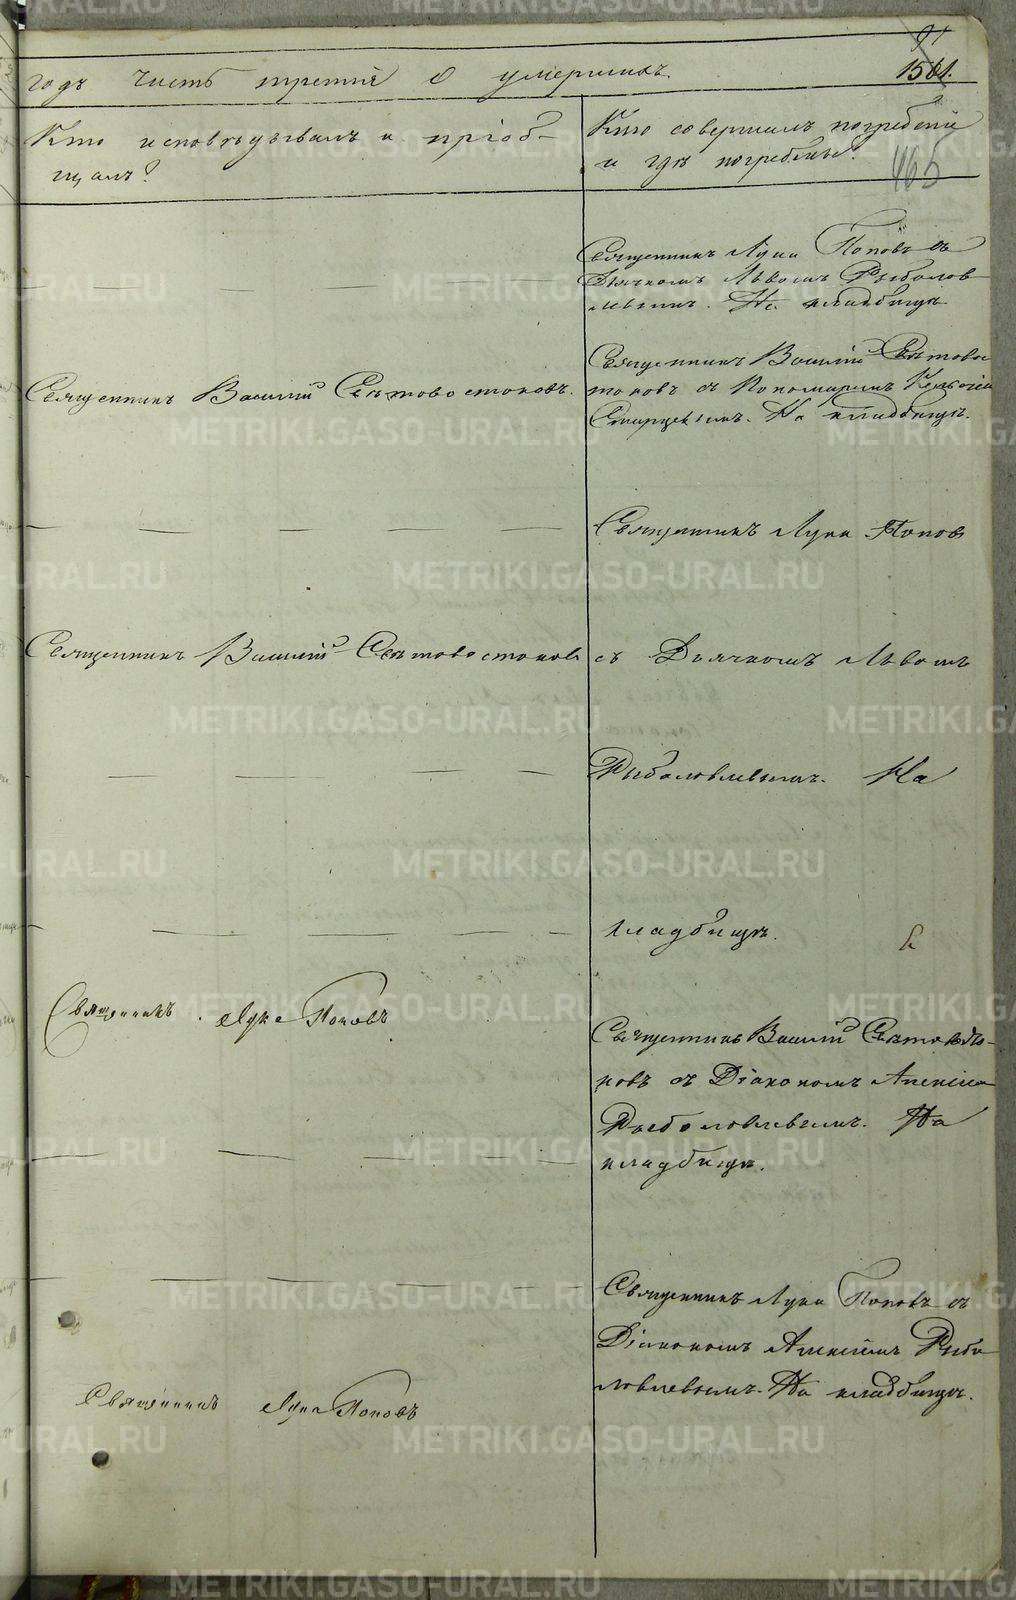 91
1501.
годъ часть третія о умершихъ.
Кто исповѣдывалъ и пріоб-
щалъ?
Кто совершалъ погребеніе
и гдѣ погребены?
465
Священникъ Лука Поповъ съ
Дьячкомъ Львомъ Рыболов
левымъ. На кладбищѣ
Священникъ Василій Свѣтовостоковъ.
Священникъ Василій Свѣтовос
токовъ съ Пономаремъ
На кладбищѣ.
Священникъ Лука Поповъ
Священникъ Василій Свѣтовостоковъ
съ Дьячкомъ Львомъ
Рыболовлевымъ. На
кладбищѣ.
Священникъ Лука Поповъ
Священникъ Василій Свѣтовосто-
ковъ съ Діакономъ Алексіем
Рыболовлевымъ. На
кладбищѣ.
Священникъ Лука Поповъ съ
Діакономъ Алексіемъ Рыбо
ловлевымъ. На кладбищѣ.
Священникъ Лука Поповъ
METRIKI.GASO-URAL.RU